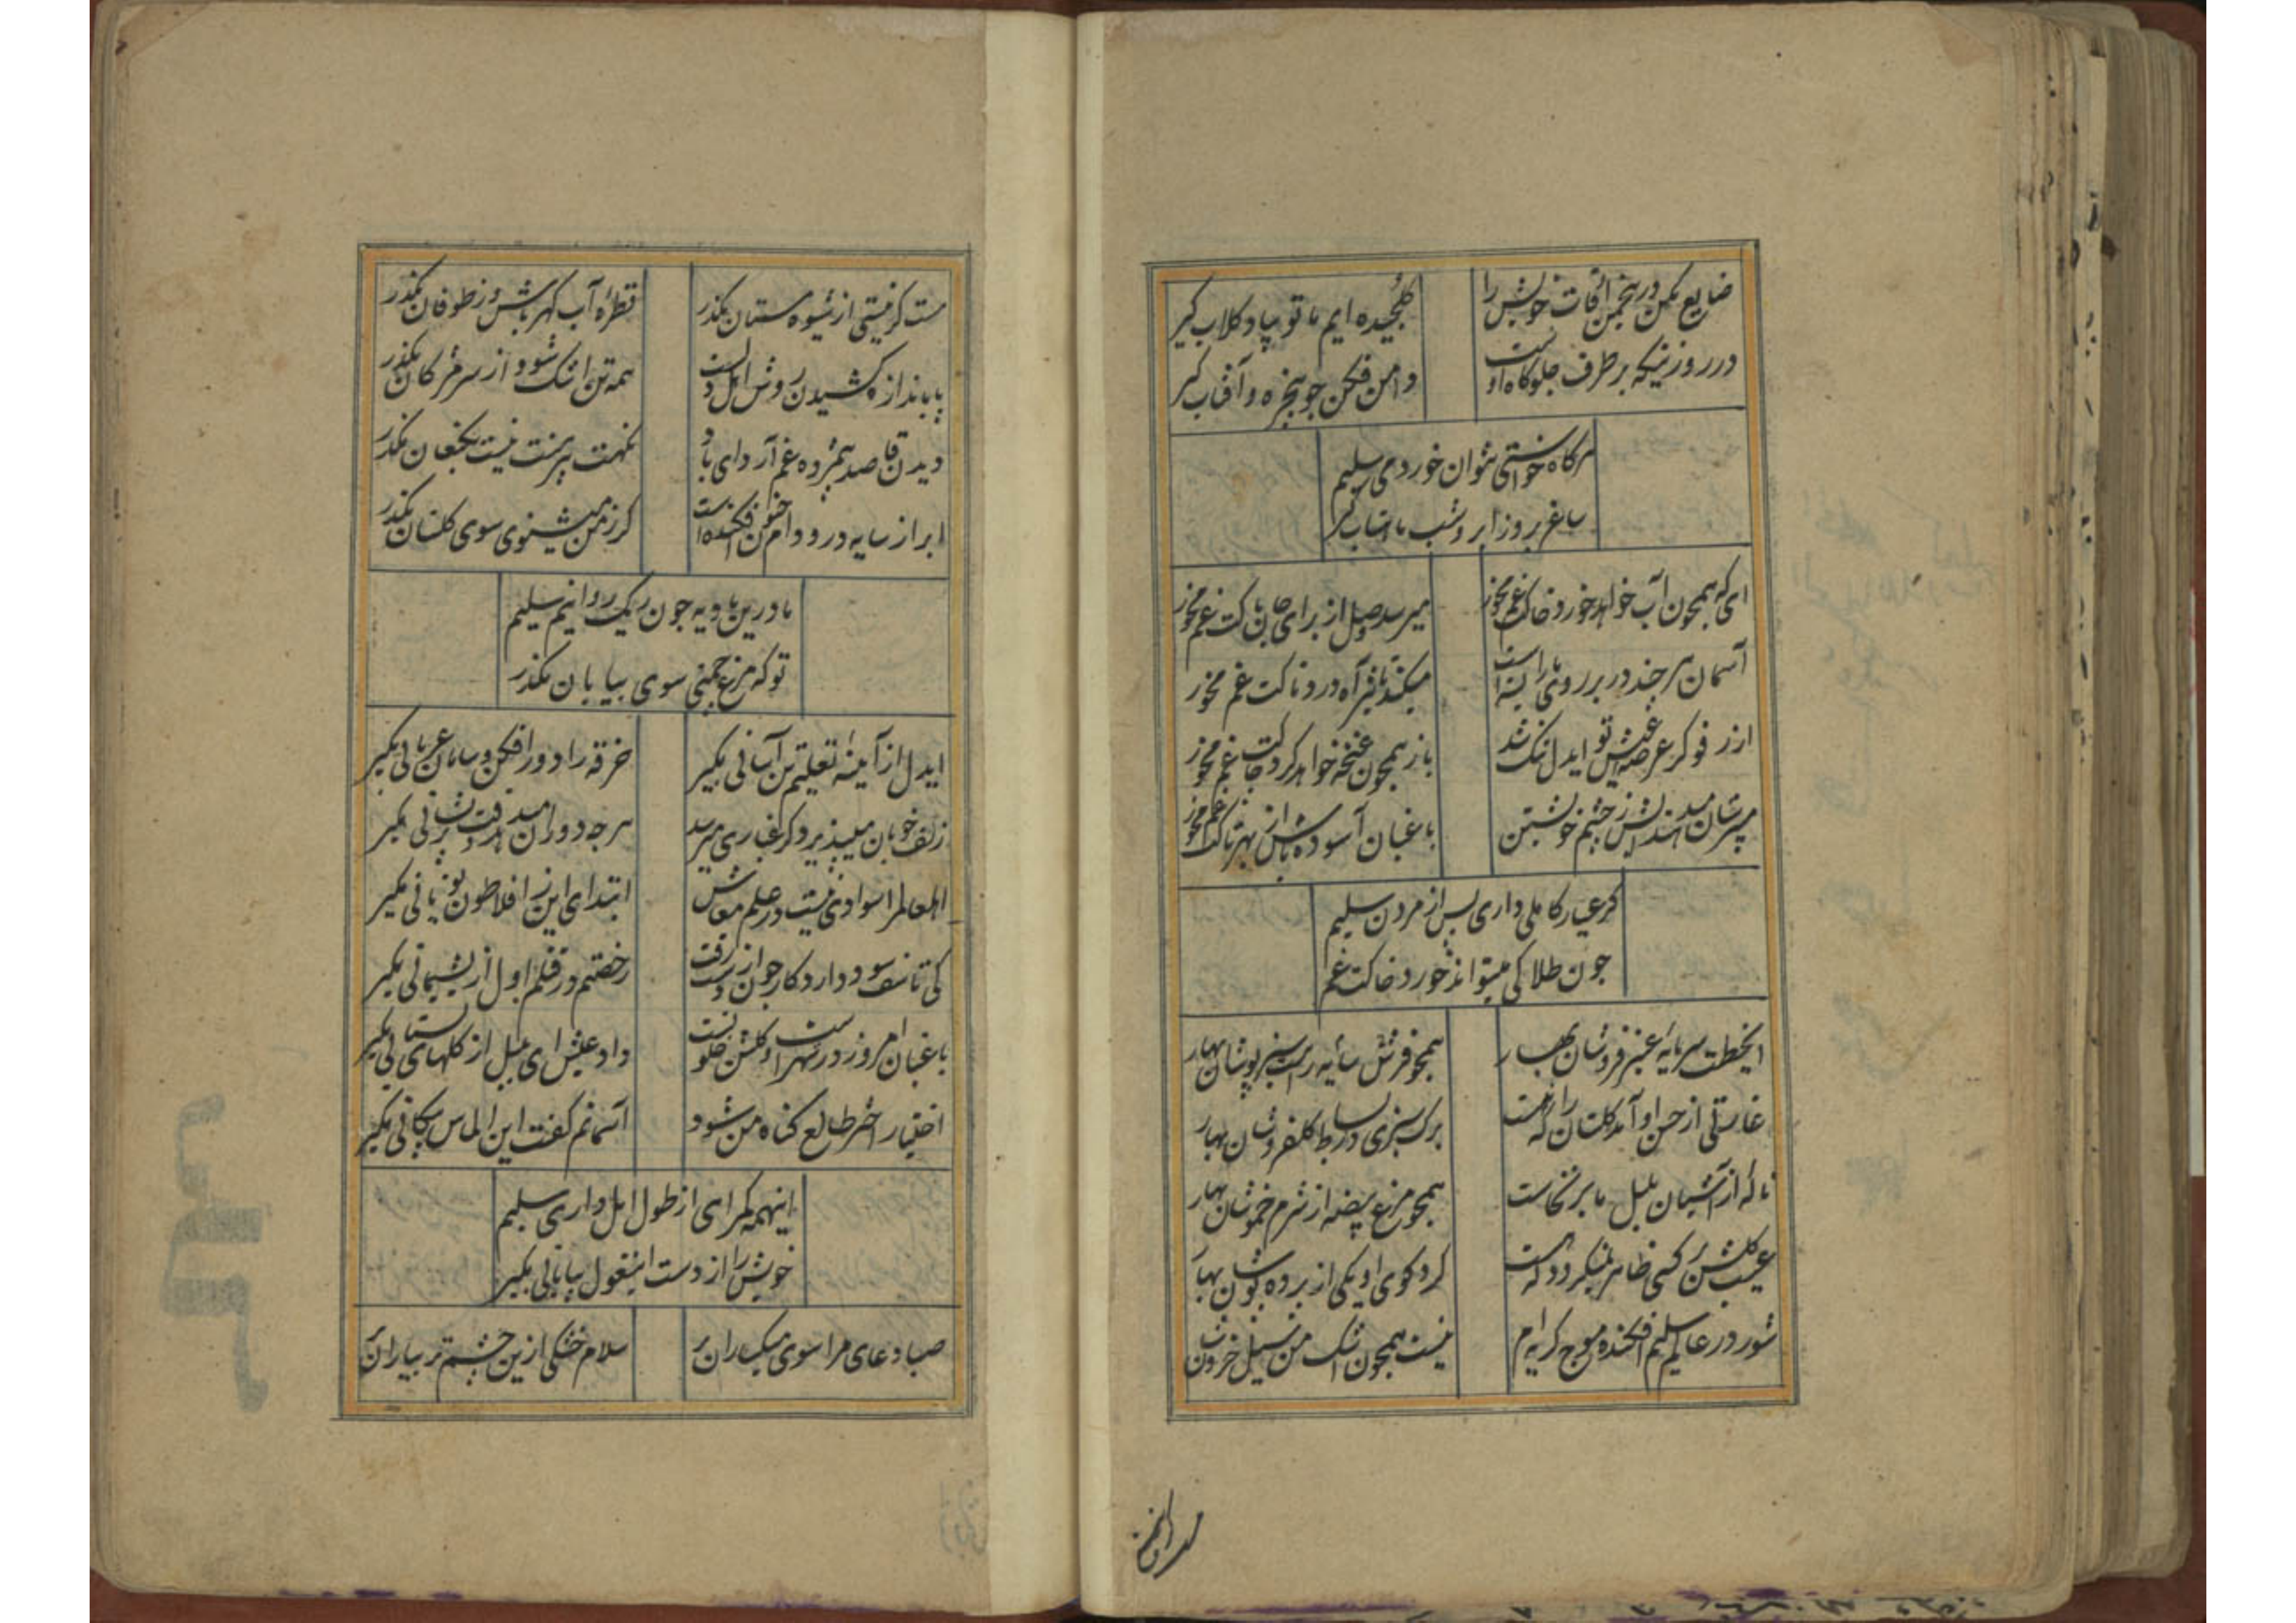 ضایع مکن در انجمن اوقات خویش را
گلچیده ایم ما تو بیا و کلاب کیر
در روزنیکه بر طرف جلوکاه اوست
دامن فکن جو پنجره و آفتاب کیر
هرکاه خواستی نتوان خورد می سلیم
ساغر بروز ابر و شب ماهتاب کیر
ای که همچون آب خواهد خورد خاکت غم مخور
میرسد وصل از برای جان پاکت غم مخور
آسمان هر جند در بر روی ما را بسته است
میکند تاثیر آه دردناکت غم مخور
از رفو کر عرصه عیش تو ایدل تنک شد
باز همچون غنچه خواهد کرد جاکت غم مخور
میپرستان مید هندش ز چشم خویشتن
باغبان آسوده باش از بهر تاکت غم مخور
کر عیار کاملی داری پس از مردن سلیم
جون طلا کی میتواند خورد خاکت غم
ایخطت سرمایه عنبر فروشان بهار
همچو فرش سایه رهت سبز پوشان بهار
غارتی از حسن او آمد کلستان را که نیست
برک سبزی در بساط کلفروشان بهار
ناله از آشیان بلبل ما برنخاست
همچو مرغ بیضه از شرم خموشان بهار
عیب کلشن بر کسی ظاهر نمیکردد که هست
کرد کوی او یکی از پرده پوشان بهار
شور در عالم سلیم افکنده موج کریه ام
نیست همچون اشک من سیل خروشان
مست کر نیستی از شیوه مستان مکذر
قطره آب کهر باش و ز طوفان مکذر
پا باندازه کشیدن روش اهل دلست
همه تن اشک شو و از سر مژکان مکذر
دیدن قاصد پژمرده غم آرد ای باد
نکهت پیرهنت نیست بکنعان مکذر
ابر از سایه درو دام جنون افکنده است
کر ز من میشنوی سوی کلستان مکذر
ما درین بادیه جون ریک روانیم سلیم
تو که مرغ چمنی سوی بیابان مکذر
ایدل از آینه تعلیم تن آسانی بکیر
خرقه را دور افکن و سامان عریانی بکیر
زلف خوبان میپذیرد کر غباری میرسد
هر جه دوران میدهد وقت پریشانی بکیر
اهل عالم را سوادی نیست در علم معاش
ابتدای این ز افلاطون یونانی بکیر
کی تاسف سود دارد کار جون از دست رفت
رخصتم در قلم اول از پشیمانی بکیر
باغبان امروز در شهر است و کلشن خلوتست
داد عیش ای بلبل از کلهای بستانی بکیر
اختیار اختر طالع کناه من شود
آسمانم کفت این الماس پیکانی بکیر
اینهمه کمراهی از طول امل داری سلیم
خویش را از دست این غول بیابانی بکیر
صبا دعای مرا سوی میکساران بر
سلام خشکی ازین چشم تر بیاران بر